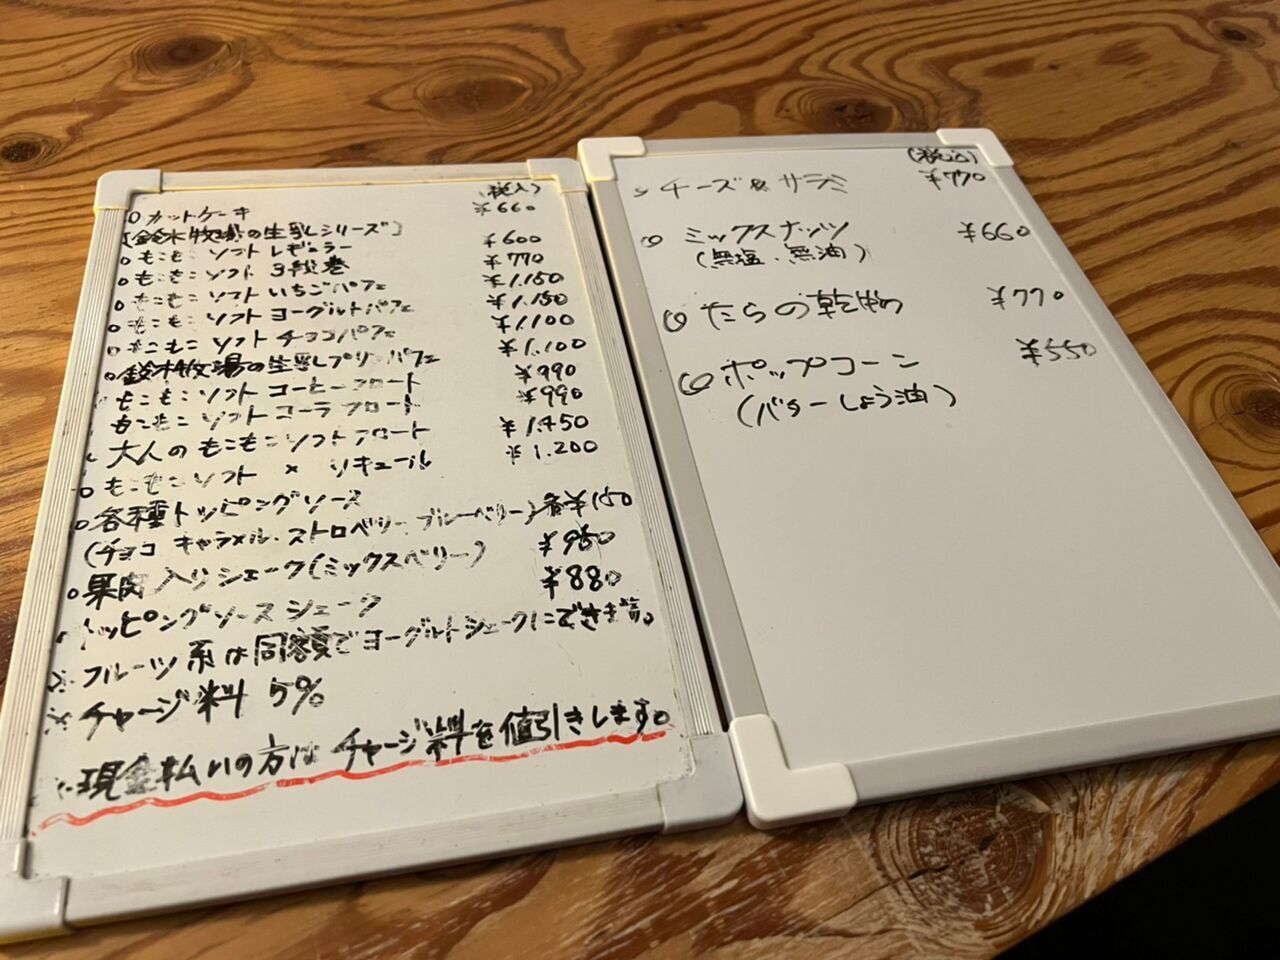 (税込)
○カットケーキ ¥660
[鈴木牧場の生乳シリーズ]
○もこもこソフト レギュラー ¥600
○もこもこソフト 3段巻 ¥770
○もこもこソフト いちごパフェ ¥1.150
○もこもこソフト ヨーグルトパフェ ¥1.150
○もこもこソフト チョコパフェ ¥1.100
○鈴木牧場の生乳プリンパフェ ¥1.100
もこもこソフト コーヒーフロート ¥990
もこもこソフト コーラフロート ¥990
大人のもこもこソフトフロート ¥1.450
○もこもこソフト × リキュール ¥1.200
○各種トッピングソース
(チョコ キャラメル・ストロベリー・ブルーベリー) ¥150
○果肉入りシェーク(ミックスベリー) ¥950
トッピングソースシェーク ¥880
※フルーツ系は同額でヨーグルトシェークにできます。
※チャージ料 5%
※現金払いの方はチャージ料を値引きします。
(税込)
○チーズ&サラミ ¥770
○ミックスナッツ ¥660
(無塩・無油)
○たらの乾物 ¥770
○ポップコーン ¥550
(バターしょう油)